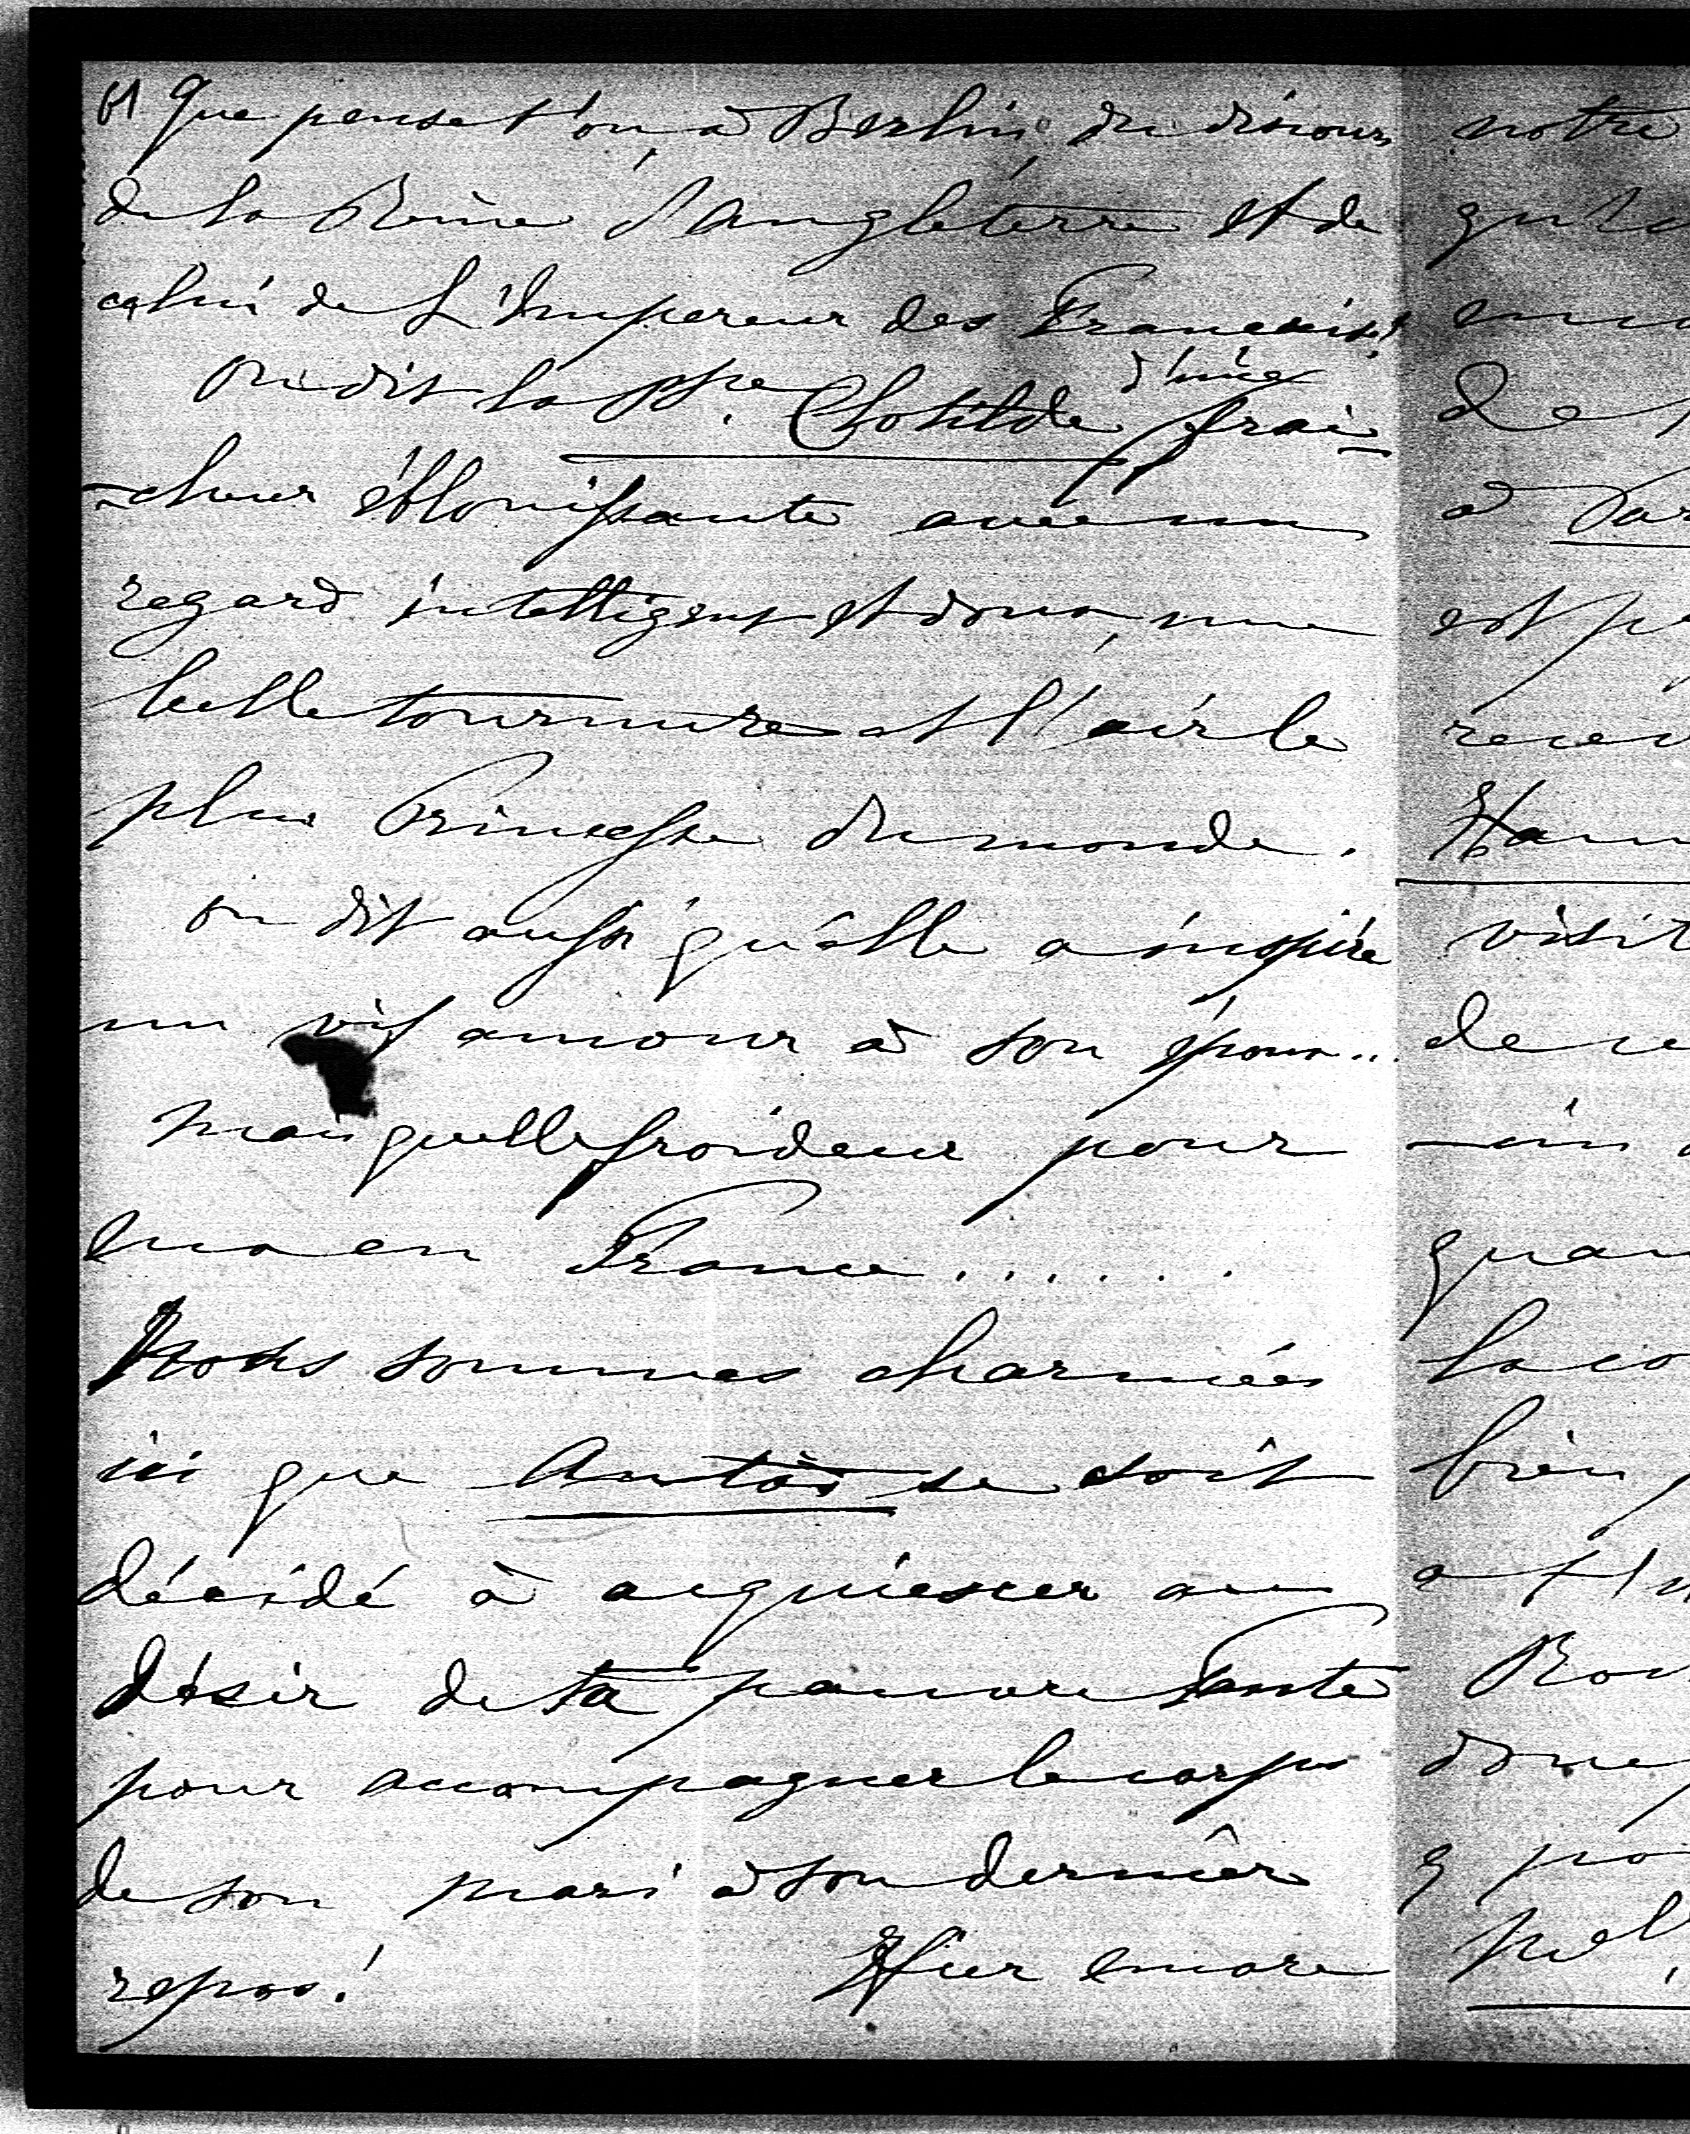 61 Que pense t'on, à Berlin, du discours
de la Reine d'Angleterre et de
celui de L'Empereur des Français?
on dit la Psse. Clotilde d'une fraî-
-cheur éblouissante avec un
regard intelligent et doux, une
belle tournure et l'air le
plus Princesse du monde.
on dit aussi qu'elle a inspiré
un vif amour à son époux...
mais quelle froideur pour
eux en France......
Nous sommes charmées
ici que Antoin se soit
décidé à acquiescer au
désir de ta pauvre Tante
pour accompagner le corps
de son mari à son dernier
repos! Hier encore
notre
de
à
est
visit
de ce
la co
bien